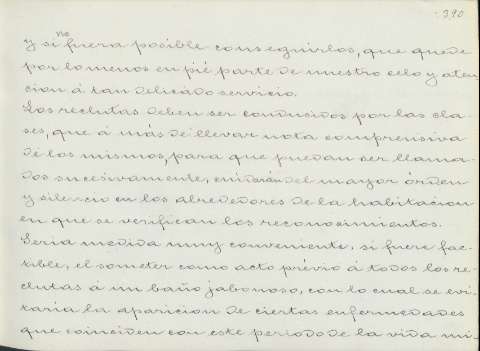 390
no
y si fuera posible conseguirlos, que quede
por lo menos en pié parte de nuestro celo y aten
cion á tan delicado servicio.
Los reclutas deben ser conducidos por las cla-
ses, que á más de llevar nota comprensiva
de los mismos, para que puedan ser llama-
dos sucesivamente, cuidarán del mayor órden
y silencio en los alrededores de la habitacion
en que se verifican los reconocimientos.
Seria medida muy conveniente, si fuere fac-
tible, el someter como acto prévio á todos los re-
clutas á un baño jabonoso, con lo cual se evi-
taria la aparicion de ciertas enfermedades
que coinciden con este periodo de la vida mi-